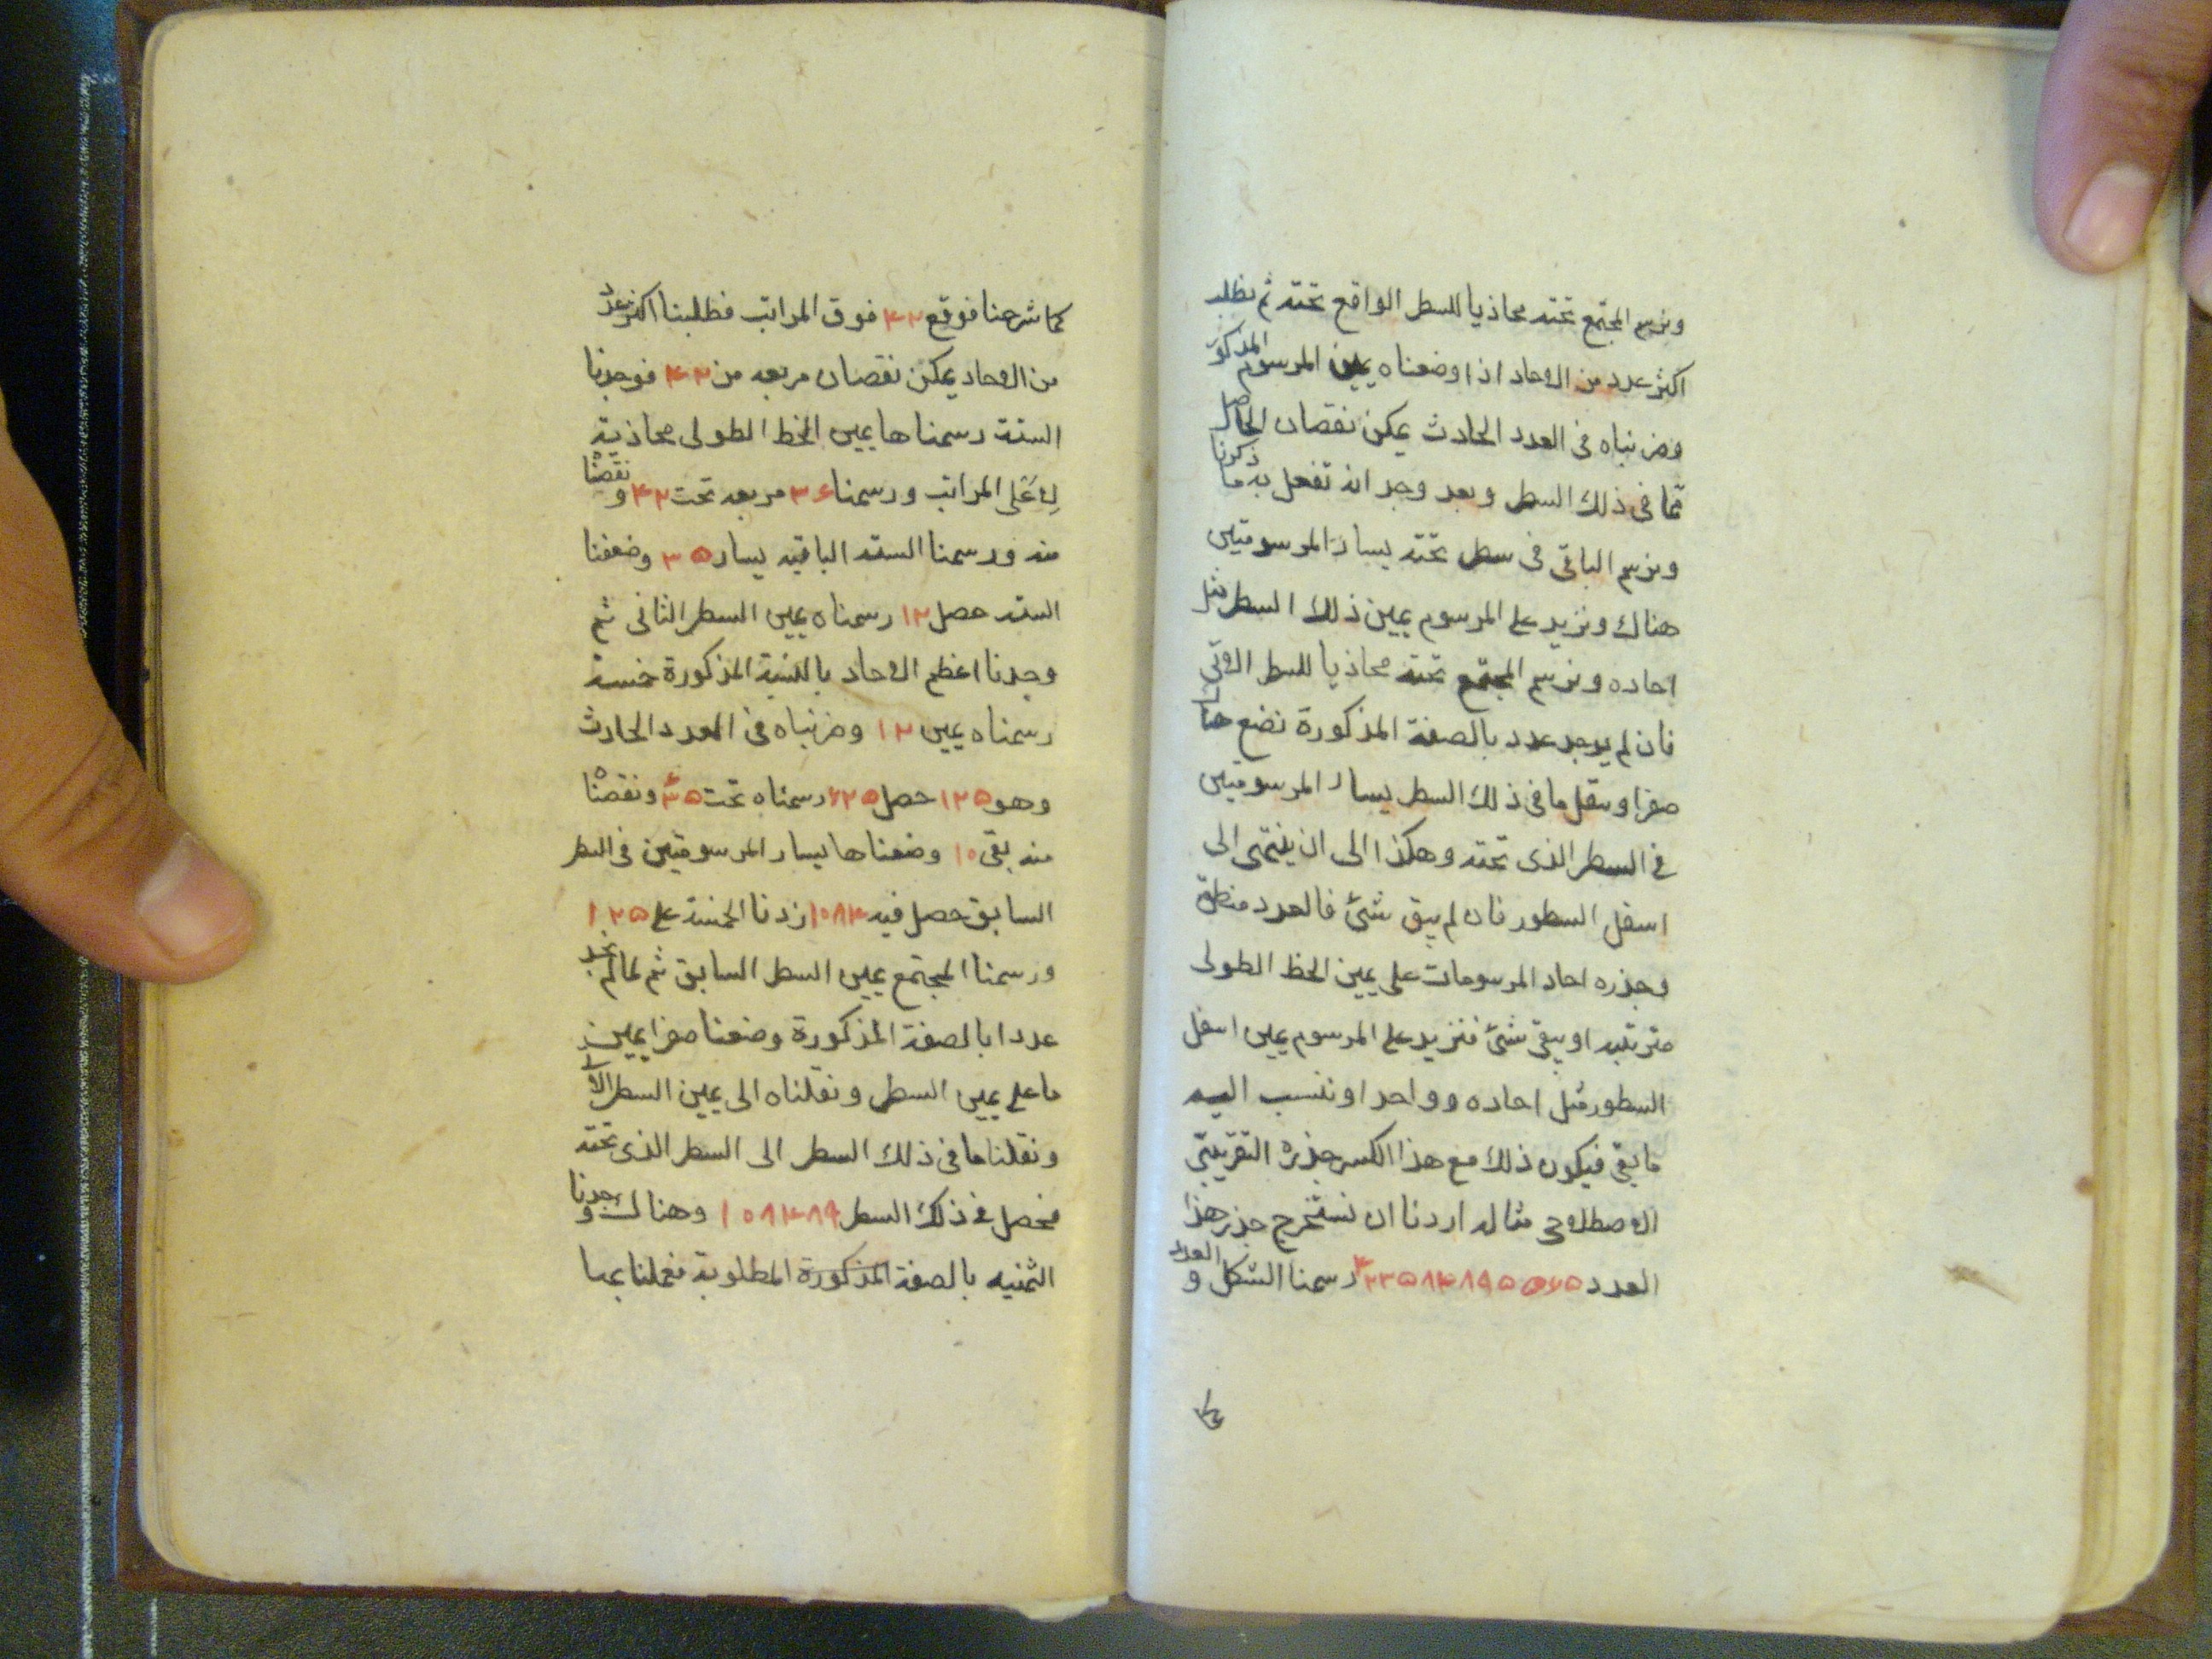 ونرسم المجتمع تحته محاذيا للسطر الواقع تحته ثم نطلب
اكثر عدد من الاحاد اذا وضعناه يمين المرسوم المذكور
وضربناه فى العدد الحادث يمكن نقصان الحاصل
مما فى ذلك السطر وبعد وجدانه تفعل به ما ذكرنا
ونرسم الباقى فى سطر تحته يسار المرسومتين
هناك ونزيد على المرسوم يمين ذلك السطر مثل
احاده ونرسم المجتمع تحته محاذيا للسطر الاتى
فان لم يوجد عدد بالصفة المذكورة نضع هناك
صفرا وننقل ما فى ذلك السطر يسار المرسومتين
فى السطر الذى تحته وهكذا الى ان ينتهى الى
اسفل السطور فان لم يبق شئ فالعدد منطق
وجذره احاد المرسومات على يمين الخط الطولى
مترتبه او يبقى شئ فنزيد على المرسوم يمين اسفل
السطور مثل احاده وواحدا وننسب اليه
ما بقى فيكون ذلك مع هذا الكسر جذره التقريبى
الاصطلاحى مثاله اردنا ان نستخرج جذر هذا
العدد رسمنا الشكل و العدد
كما شرحنا فوقع ۴۲ فوق المراتب فطلبنا اكثر عدد
من الاحاد يمكن نقصان مربعه من ۴۲ فوجدنا
الستة رسمناها يمين الخط الطولى محاذية
لاعلى المراتب ورسمنا ۳۶ مربعه تحت ۴۲ و نقصنا
منه ورسمنا الستة الباقيه يسار ۳۵ وضعفنا
الستة حصل ۱۲ رسمناه يمين السطر الثانى ثم
وجدنا اعظم الاحاد بالنسبة المذكورة خمسة
رسمناه يمين ۱۲ وضربناه فى العدد الحادث
وهو ۱۲۵ حصل ۶۲۵ رسمناه تحت ۶۳۵ ونقصنا
منه بقى ۱۰ وضعناها يسار المرسومتين فى السطر
السابق حصل فيه ۱۰۸۴ زدنا الخمسة على ۱۲۵
ورسمنا المجتمع يمين السطر السابق ثم لما لم نجد
عددا بالصفة المذكورة وضعنا صفرا يمين
ما على يمين السطر ونقلناه الى يمين السطر الاتى
ونقلنا ما فى ذلك السطر الى السطر الذى تحته
فحصل فى ذلك السطر ۱۰۸۴۸۹ وهناك وجدنا
الثمنيه بالصفة المذكورة المطلوبة فعملنا بها